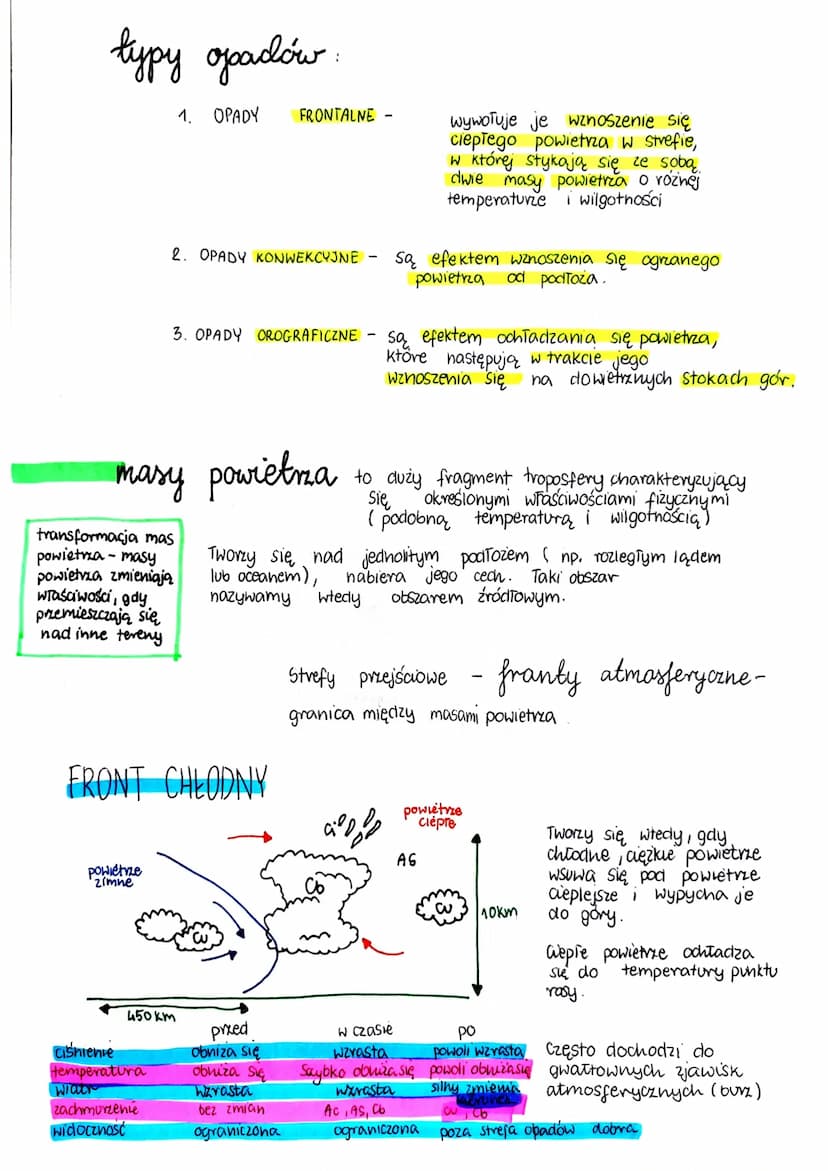 typy opadów:
1. OPADY FRONTALNE - wywołuje je wznoszenie się
ciepłego powietrza w strefie,
w której stykają się ze sobą
dwie masy powietrza o różnej
temperaturze i wilgotności
2. OPADY KONWEKCYJNE - są efektem wznoszenia się ogrzanego
powietrza od podłoża.
3. OPADY OROGRAFICZNE - są efektem ochładzania się powietrza,
które następują w trakcie jego
wznoszenia się na dowietrznych stokach gór.
masy powietrza to duży fragment troposfery charakteryzujący
się określonymi właściwościami fizycznymi
(podobną temperaturą i wilgotnością)
transformacja mas
powietrza - masy
powietrza zmieniają
właściwości, gdy
przemieszczają się
nad inne tereny
Tworzy się nad jednolitym podłożem (np. rozległym lądem
lub oceanem), nabiera jego cech. Taki obszar
nazywamy wtedy obszarem źródłowym.
Strefy przejściowe - fronty atmosferyczne -
granica między masami powietrza
FRONT CHŁODNY
powietrze
ciepłe
Ci
powietrze
zimne
Cb
Cu
Cu
10km
450 km
Tworzy się wtedy, gdy
chłodne, ciężkie powietrze
wsuwa się pod powietrze
cieplejsze i wypycha je
do góry.
Ciepłe powietrze ochładza
się do temperatury punktu
rosy.
Często dochodzi do
gwałtownych zjawisk
atmosferycznych (burz)
przed w czasie po
ciśnienie obniża się wzrasta powoli wzrasta
temperatura obniża się szybko obniża się powoli obniża się
wiatr wzrasta wzrasta silny zmienia
kierunek
zachmurzenie bez zmian Ac, As, Cb Cu, Cb
widoczność ograniczona ograniczona poza strefą opadów dobra